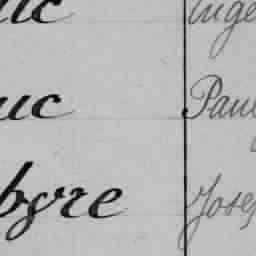 uc inge
uc Paul
byre Jose